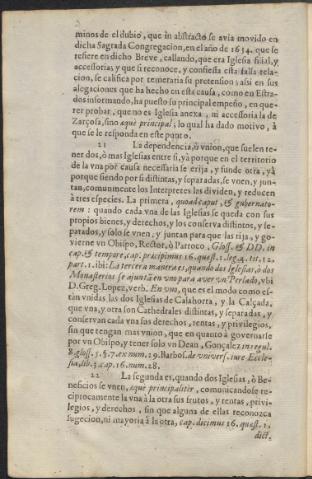 minos de el dubio, que in abstracto se avia movido en
dicha Sagrada Congregacion, en el año de 1634. que se
refiere en dicho Breve, callando, que era Iglesia filial, y
accessoria, y que si reconoce, y confiesta esta falsa rela-
cion, se califica por temeraria su pretension; assi en sus
alegaciones que ha hecho en esta causa, como en Estra-
dos informando, ha puesto su principal empeño, en que-
rer probar, que no es Iglesia anexa, ni accessoria la de
Zarçosa, sino æquè principal; lo qual ha dado motivo, à
que se le responda en este punto.
21 La dependencia, ò vnion, que suelen te-
ner dos, ò mas Iglesias entre si, yà porque en el territorio
de la vna por causa necessaria se erija, y funde otra, yà
porque siendo por si distintas, y separadas, se vnen, y jun-
tan, comunmente los Interpretes las dividen, y reducen
à tres especies. La primera, quoad caput, & gubernato-
rem: quando cada vna de las Iglesias se queda con sus
propios bienes, y derechos, y los conserva distintos, y se-
parados, y solo se vnen, y juntan para que las rija, y go-
vierne vn Obispo, Rector, ò Parroco, Gloss. & DD. in
cap. & tempore, cap. præcipimus 16. quæst. 1. leg. 4. tit. 12.
part. 1. ibi: La tercera manera es, quando dos Iglesias, ò dos
Monasterios se ajuntã en vno para aver vn Perlado, vbi
D. Greg. Lopez, verb. En vno, que es el modo como es-
tàn vnidas las dos Iglesias de Calahorra, y la Calçada,
que vna, y otra son Cathedrales distintas, y separadas, y
conservan cada vna sus derechos, rentas, y privilegios,
sin que tengan mas vnion, que en quanto à governarse
por vn Obispo, y tener solo vn Dean, Gonçalez in regul.
8. gloss. 5. §. 7. ex num. 29. Barbos. de vnivers. iure Eccle-
sia, lib. 3. cap. 16. num. 28.
22 La segunda es, quando dos Iglesias, ò Be-
neficios se vnen, æque principaliter, comunicandose re-
ciprocamente la vna à la otra sus frutos, y rentas, privi-
legios, y derechos, sin que alguna de ellas reconozca
sugecion, ni mayoria à la otra, cap. decimus 16. quæst. 1.
dict.